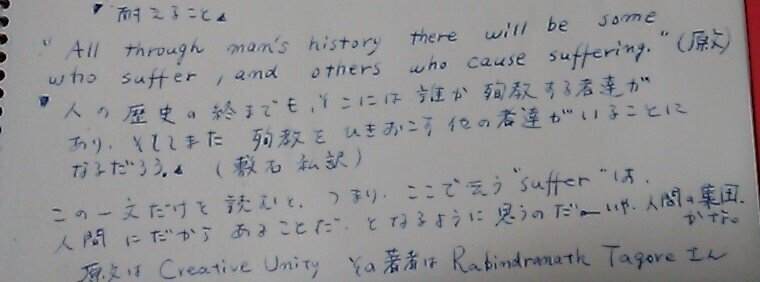 「耐えること」
"All through man's history there will be some
who suffer, and others who cause suffering." (原文)
「人の歴史の終までも、そこには誰か殉教する者達が
あり、そしてまた 殉教をひきおこす他の者達がいることに
なるだろう。」 (敷石 私訳)
この一文だけを読むと、つまり、ここで言う "suffer" は、
人間にだからあることだ、となるように思うのだ―いや、人間の集団、
かな。
原文は Creative Unity その著者は Rabindranath Tagore さん